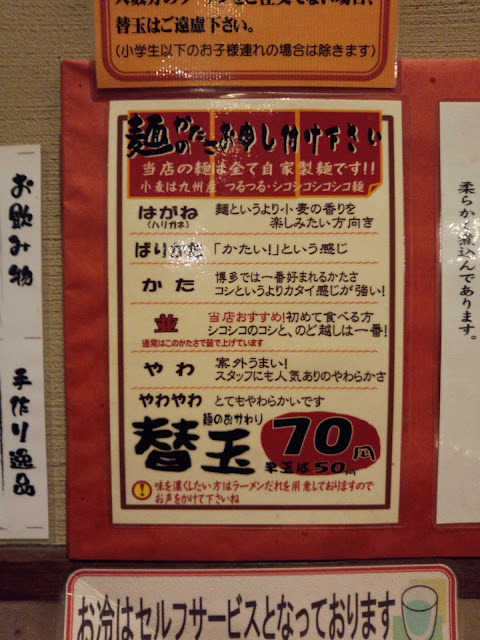 替玉はご遠慮下さい。
(小学生以下のお子様連れの場合は除きます)
麺のかたさお申し付け下さい
当店の麺は全て自家製麺です!!
小麦は九州産 つるつる・シコシコシコシコ麺
はがね
(ハリガネ)
麺というより小麦の香りを
楽しみたい方向き
ばりかた
「かたい!」という感じ
かた
博多では一番好まれるかたさ
コシというよりカタイ感じが強い!
並
通常はこのかたさで茹で上げています
当店おすすめ!初めて食べる方
シコシコのコシと、のど越しは一番!
やわ
案外うまい!
スタッフにも人気ありのやわらかさ
やわやわ
とてもやわらかいです
麺のおかわり
替玉
70円
半玉は50円
味を濃くしたい方はラーメンだれを用意しておりますので
お声をかけて下さいね
お飲み物
手作り逸品
柔らかく煮込んであります。
お冷はセルフサービスとなっております